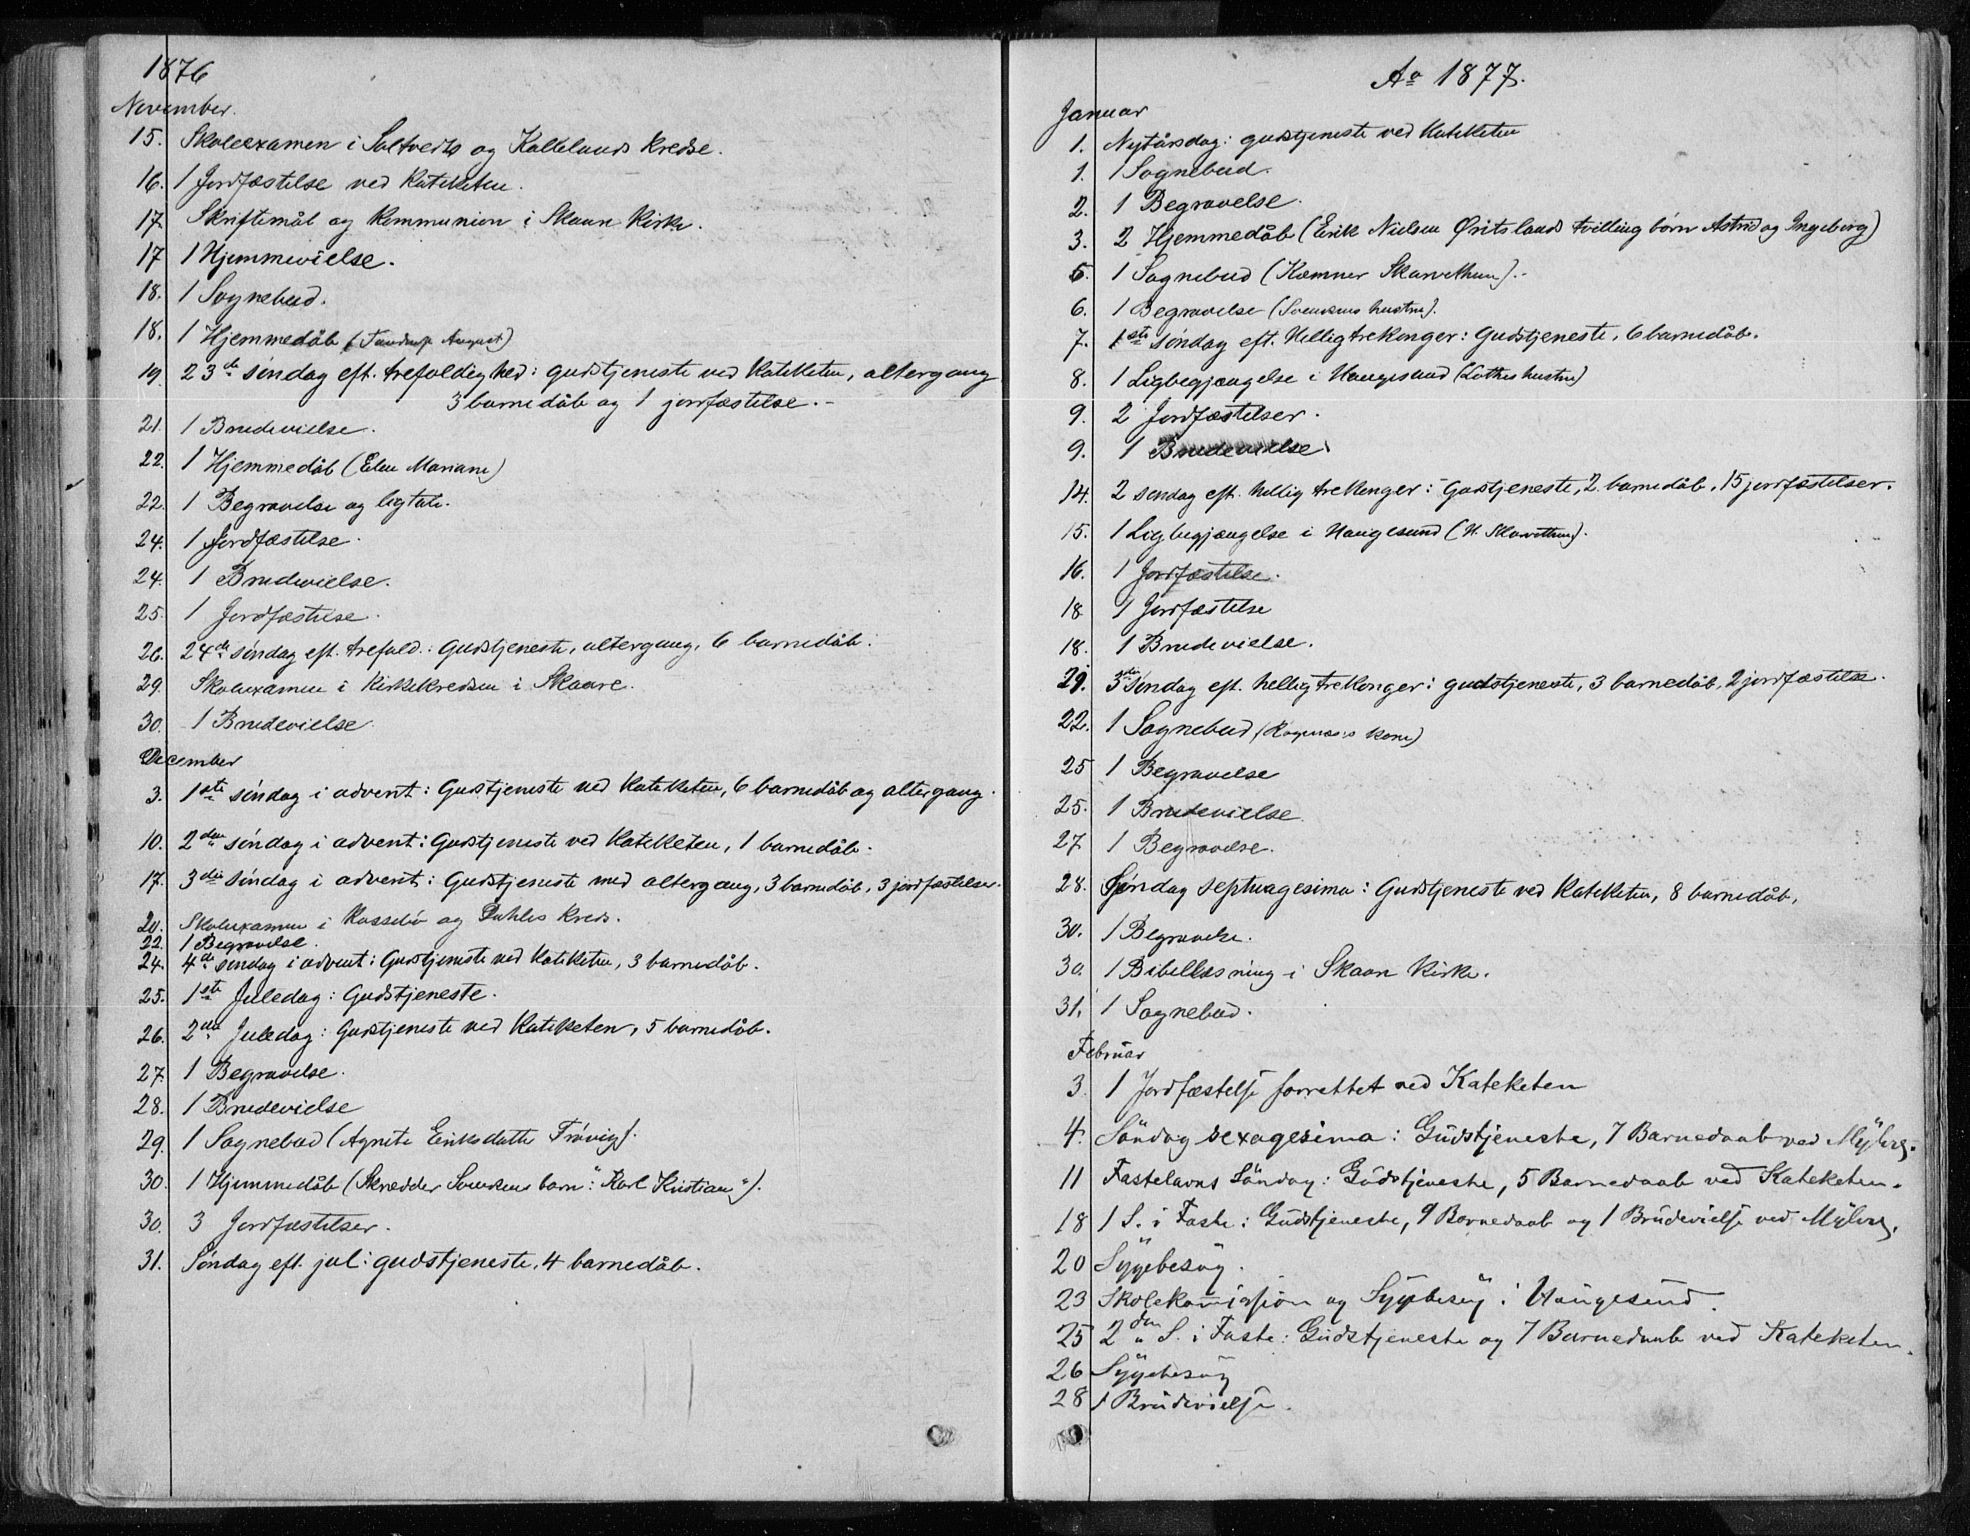 1876
November.
15. Skoleexamen i Saltveits og Kallelands Kredse.
16. 1 Jordfæstelse ved Kateketen.
17. Skriftemål og Kommunion i Skaare Kirke.
17 1 Hjemmevielse.
18. 1 Sognebud.
18. 1 Hjemmedåb ( August)
19. 23de søndag eft. trefoldighed: gudstjeneste ved Kateketen, altergang
3 barnedåb og 1 jordfæstelse.-
21. 1 Brudevielse.
22. 1 Hjemmedåb (Elen Mariane)
22. 1 Begravelse og ligtale.
24. 1 Jordfæstelse.
24. 1 Brudevielse.
25. 1 Jordfæstelse.
26. 24de søndag eft. trefold.: Gudstjeneste, altergang, 6 barnedåb.
29. Skolexamen i Kirkekredsen i Skaare.
30. 1 Brudevielse.
December
3. 1ste søndag i advent: Gudstjeneste ved Kateketen, 6 barnedåb og altergang.
10. 2den søndag i advent: Gudstjeneste ved Kateketen, 1 barnedåb.
17. 3die søndag i advent: Gudstjeneste med altergang, 3 barnedåb, 3 jordfæstelser.
20. Skolexamen i Rossebø og Dahles Kreds.
22. 1 Begravelse.
24. 4de søndag i advent: Gudstjeneste ved Kateketen, 3 barnedåb.
25. 1ste Juledag: Gudstjeneste.
26. 2den Juledag: Gudstjeneste ved Kateketen, 5 barnedåb.
27. 1 Begravelse.
28. 1 Brudevielse
29. 1 Sognebud (Agnete Eriksdatter Frøvig).
30. 1 Hjemmedåb (Skrædder Svensens barn: "Karl Kristian").
30. 3 Jordfæstelser.
31. Søndag eft. jul: gudstjeneste, 4 barnedåb.
Ao 1877.
Januar
1. Nytårsdag: gudstjeneste ved Kateketen
1. 1 Sognebud.
2. 1 Begravelse.
3. 2 Hjemmedåb (Erik Nielsen Øritslands tvillingbørn Astrid og Ingeborg)
5. 1 Sognebud (Kæmner Skarvethun).-
6. 1 Begravelse (Svensens hustru).
7. 1ste søndag eft. Helligtrekonger: Gudstjeneste, 6 barnedåb.
8. 1 Ligbegjængelse i Haugesund (Lothes hustru)
9. 2 Jordfæstelser.
9. 1 Brudevielse.
14. 2 søndag eft. hellig trekonger: Gudstjeneste, 2 barnedåb, 15 jordfæstelser.
15. 1 Ligbegjængelse i Haugesund (H. Skarvethun).
16. 1 Jordfæstelse.
18 1 Jordfæstelse
18. 1 Brudevielse.
21. 3die Søndag eft. hellig trekonger: gudstjeneste, 3 barnedåb, 2 jordfæstelse.
22. 1 Sognebud ( kone)
25 1 Begravelse
25. 1 Brudevielse
27 1 Begravelse.
28. Søndag septuagesima: Gudstjeneste ved Kateketen, 8 barnedåb.
30. 1 Begravelse.
30. 1 Bibellæsning i Skaare Kirke.
31. 1 Sognebud.
Februar
3 1 Jordfæstelse forrettet ved Kateketen
4. Söndag sexagesima: Gudstjeneste, 7 Barnedaab ved Myhre.
11 Fastelavns Söndag: Gudstjeneste, 5 Barnedaab ved Kateketen.
18 1 S. i Faste: Gudstjeneste, 9 Barnedaab og 1 Brudevielse ved Myhre.
20 Sygebesøg.
23 Skolekomission og Sygebesøg i Haugesund.
25 2den S. i Faste: Gudstjeneste og 7 Barnedaab ved Kateketen.
26 Sygebesøg
28 1 Brudevielse.